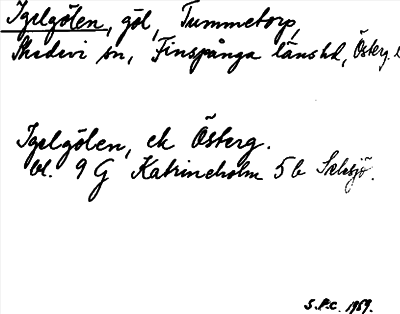 Igelgölen, göl, Tummetorp,
Skedevi sn, Finspånga länshd, Österg. l
Igelgölen, ek Österg.
bl. 9 G Katrineholm 5 b
S.P.C. 1959.